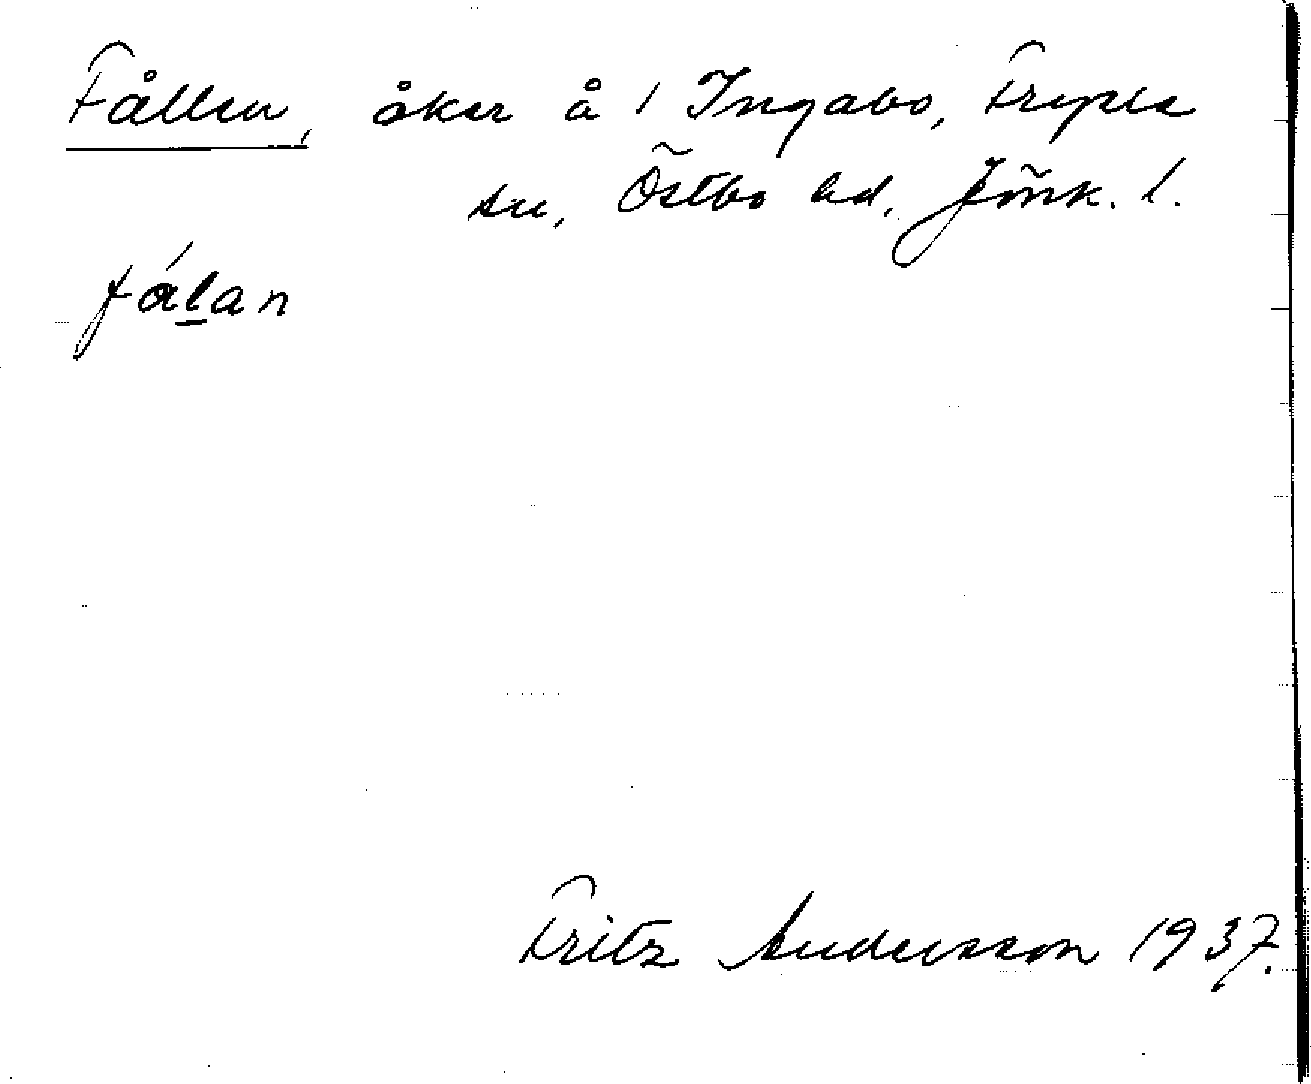 Fållen, åker å 1 Ingabo, Fryele
sn, Östbo hd. Jönk. l.
fålan
Fritz Andersson 1937.